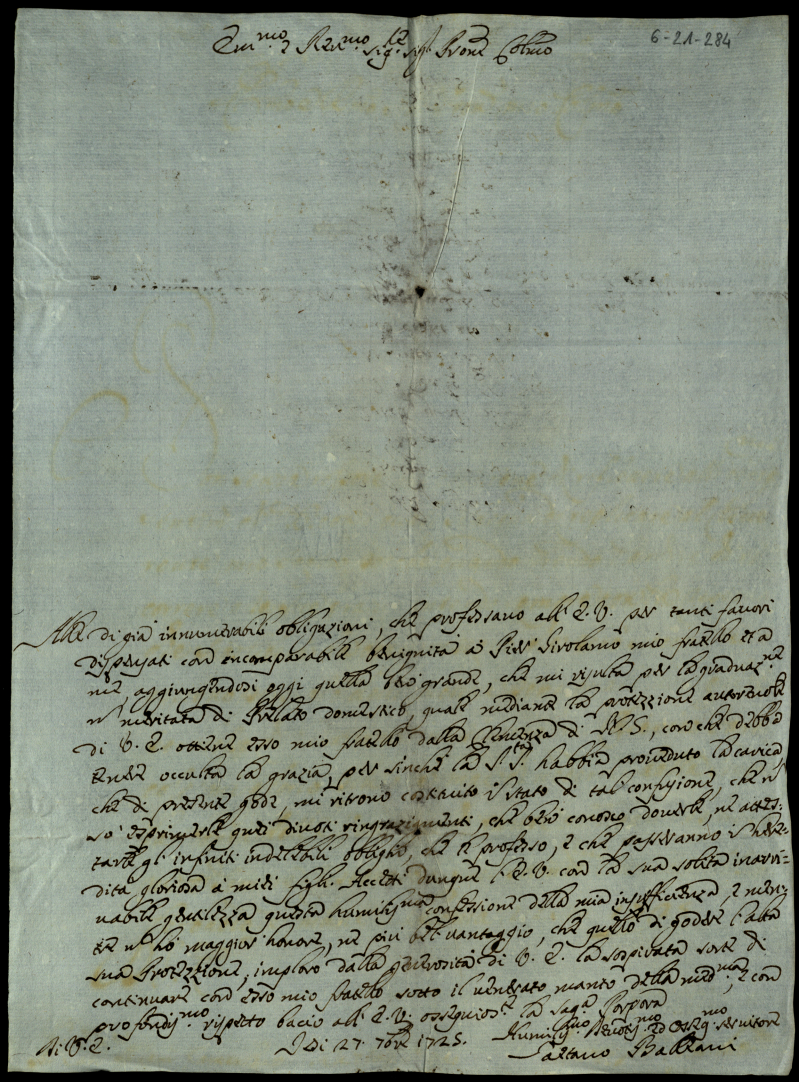 6-21-284
Em.mo e Rev.mo Sig.re Sig.r Prone Colmo
Alle di già innumerabili obligazioni, che professavo all' E. V. per tanti favori
dispensati con incomparabile benignità à Pier Girolamo mio fratello et à
me, aggiungendosi oggi quella più grande, che mi risulta per la graduaz.ne
n' meritata di Prelato domestico, quale mediante la protezzione autorevole
di V. E. ottiene esso mio fratello dalla Clemenza di N. S., con che debba
tenere occulta la grazia, per sinche la S. S.tà habbia proveduto la carica
che di presente gode, mi ritrovo costituito i' stato di tal confusione, che n'
sò esprimerle quei divoti ringraziamenti, che però conosco doverle, ne attes-
tarle gl' infiniti indelebili oblighi, che le professo, e che passeranno i' here-
dità gloriosa à miei figli. Accetti dunque l' E. V. con la sua solita inarri-
vabile gentilezza questa humiliss.ma confessione della mia insufficienza, e men-
tre n' hò maggior honore, ne più bel vantaggio, che quello di godere l' alta
sua Protezzione, imploro dalla generosità di V. E. la sospirata sorte di
continuare con esso mio fratello sotto il venerato manto della med.ma, e con
profondiss.mo rispetto bacio all' E. V. ossequios.te la Sag.a Porpora
Di V. E. Di 27. 7bre 1725. Humiliss.mo Devotiss.mo ed Osseq.mo servitore
Gaetano